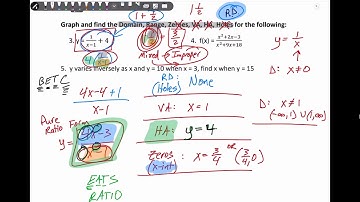 1 1/2
1 + 1/2
RD
Graph and find the Domain, Range, Zeroes, VA, HA, Holes for the following:
3. y = 1/(x-1) + 4
3/2
4. f(x) = (x²+2x-3)/(x²+9x+18)
y = 1/x
Mixed → Improper
D: x ≠ 0
5. y varies inversely as x and y = 10 when x = 3, find x when y = 15
BETC
RD: None
(Holes)
4x-4+1
x-1
VA: x = 1
D: x ≠ 1
(-∞,1) ∪ (1,∞)
Pure
Ratio Form
y = (4x-3)/(x-1)
HA: y = 4
Zeros: x = 3/4 OR (3/4,0)
(x-int)
EATS
RATIO